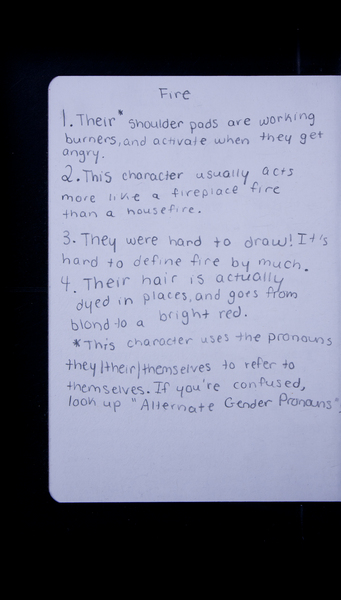 Fire
1. Their* shoulder pads are working
burners, and activate when they get
angry.
2. This character usually acts
more like a fireplace fire
than a housefire.
3. They were hard to draw! It's
hard to define fire by much.
4. Their hair is actually
dyed in places, and goes from
blond to a bright red.
*This character uses the pronouns
they/their/themselves to refer to
themselves. If you're confused,
look up "Alternate Gender Pronouns".